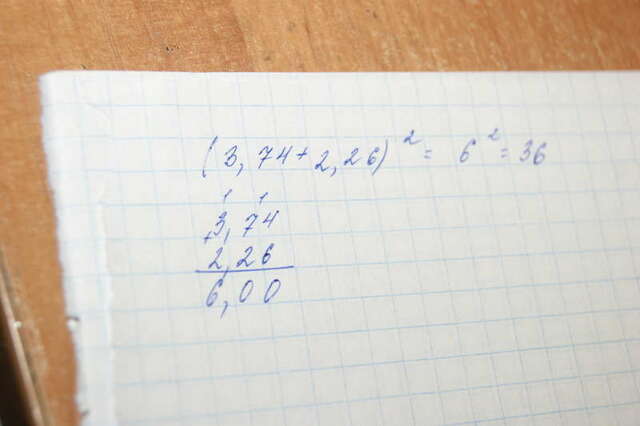 (3,74+2,26)² = 6² = 36
1 1
+3,74
2,26
6,00